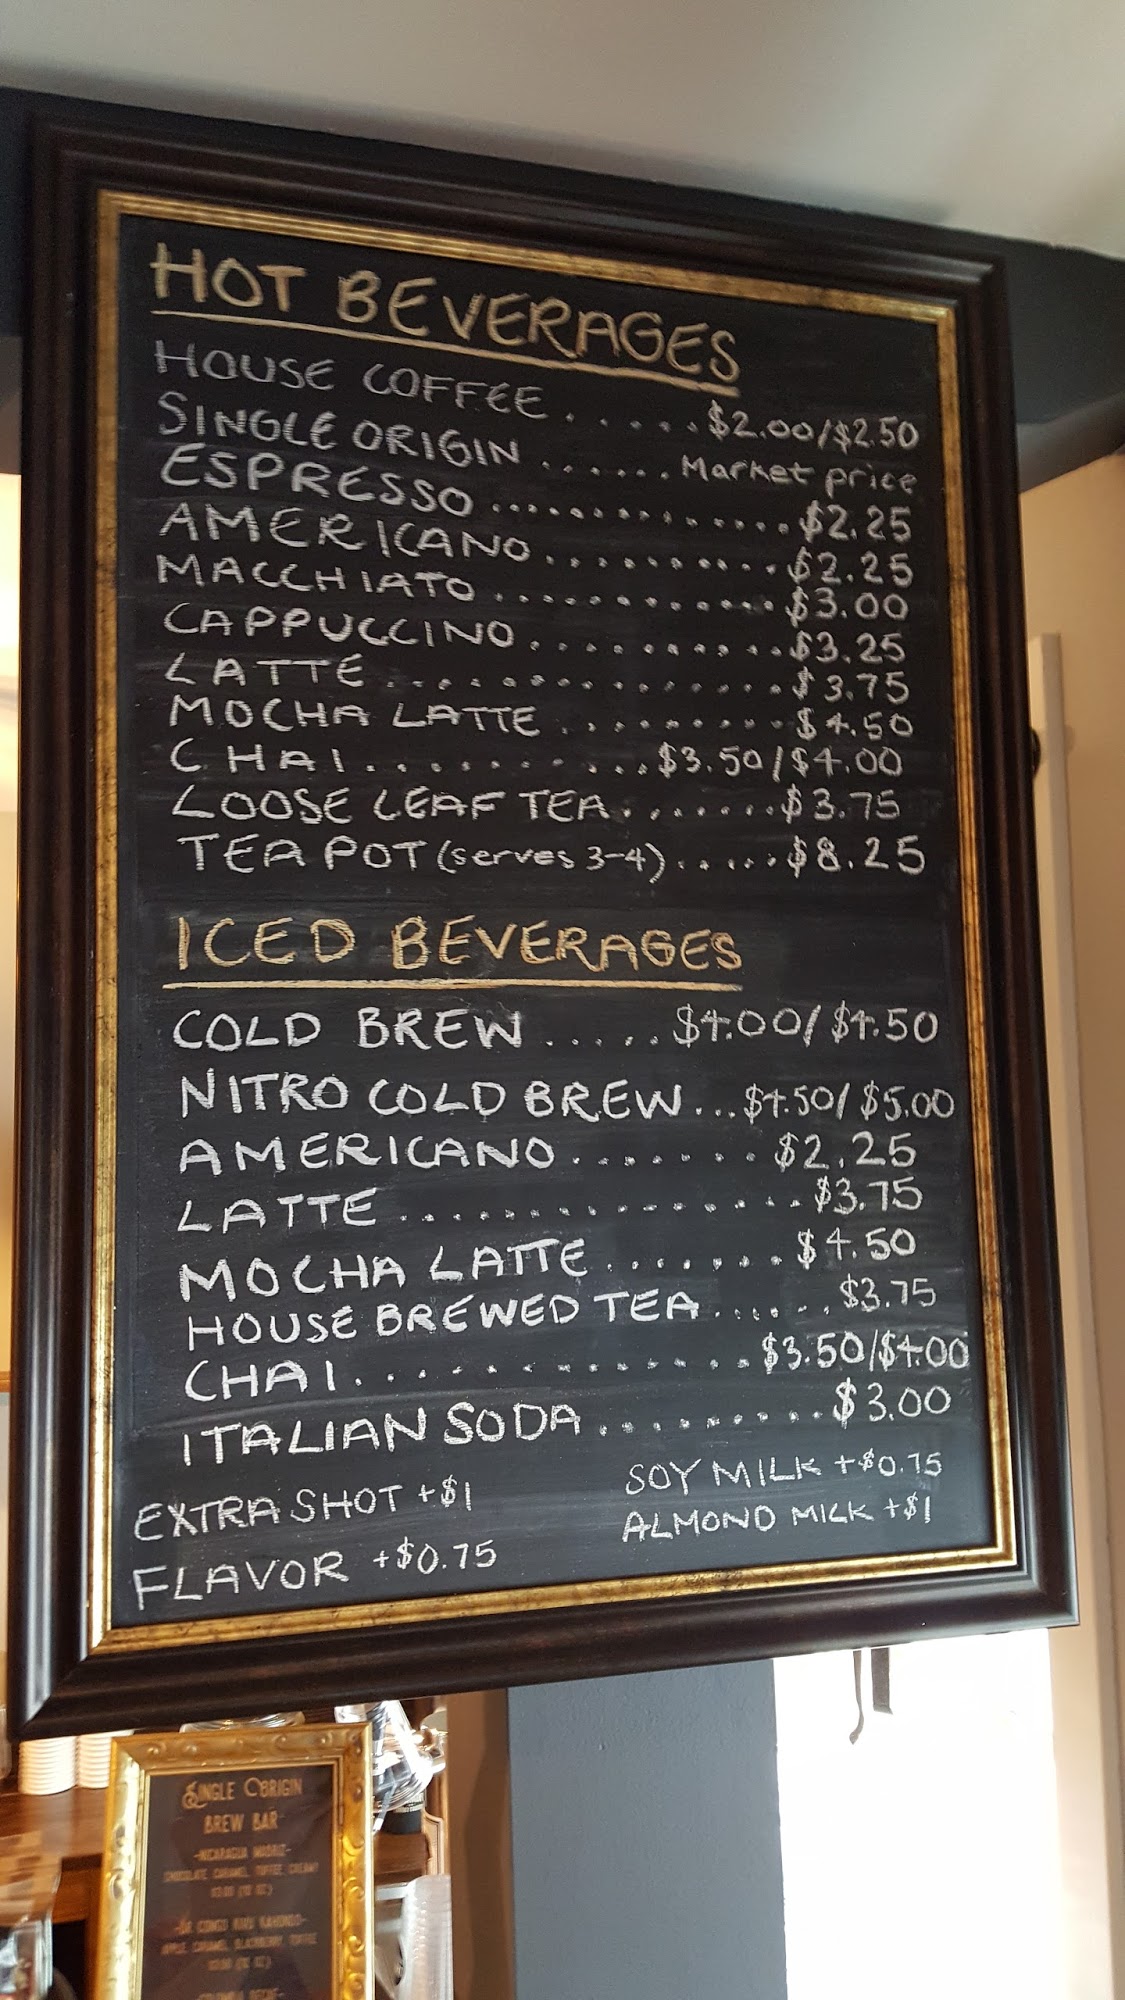 HOT BEVERAGES
HOUSE COFFEE . . . . . . $2.00/$2.50
SINGLE ORIGIN . . . . . . . Market price
ESPRESSO . . . . . . . . . . . . . . . $2.25
AMERICANO . . . . . . . . . . . . $2.25
MACCHIATO . . . . . . . . . . . . . $3.00
CAPPUCCINO . . . . . . . . . . . $3.25
LATTE . . . . . . . . . . . . . . . $3.75
MOCHA LATTE . . . . . . . . . $4.50
CHAI . . . . . . . . . . . $3.50/$4.00
LOOSE LEAF TEA . . . . . . . $3.75
TEA POT (serves 3-4) . . . . . $8.25
ICED BEVERAGES
COLD BREW . . . . . $4.00/$4.50
NITRO COLD BREW . . . $4.50/$5.00
AMERICANO . . . . . . . . $2.25
LATTE . . . . . . . . . . . . . . $3.75
MOCHA LATTE . . . . . . . $4.50
HOUSE BREWED TEA . . . . . . $3.75
CHAI . . . . . . . . . . . . . . $3.50/$4.00
ITALIAN SODA . . . . . . . . . $3.00
EXTRA SHOT +$1
FLAVOR +$0.75
SOY MILK +$0.75
ALMOND MILK +$1
SINGLE ORIGIN
BREW BAR
-NICARAGUA
CHOCOLATE, CARAMEL, TOFFEE, CREAMY
CONGO
APPLE, CARAMEL, BLACKBERRY, TOFFEE